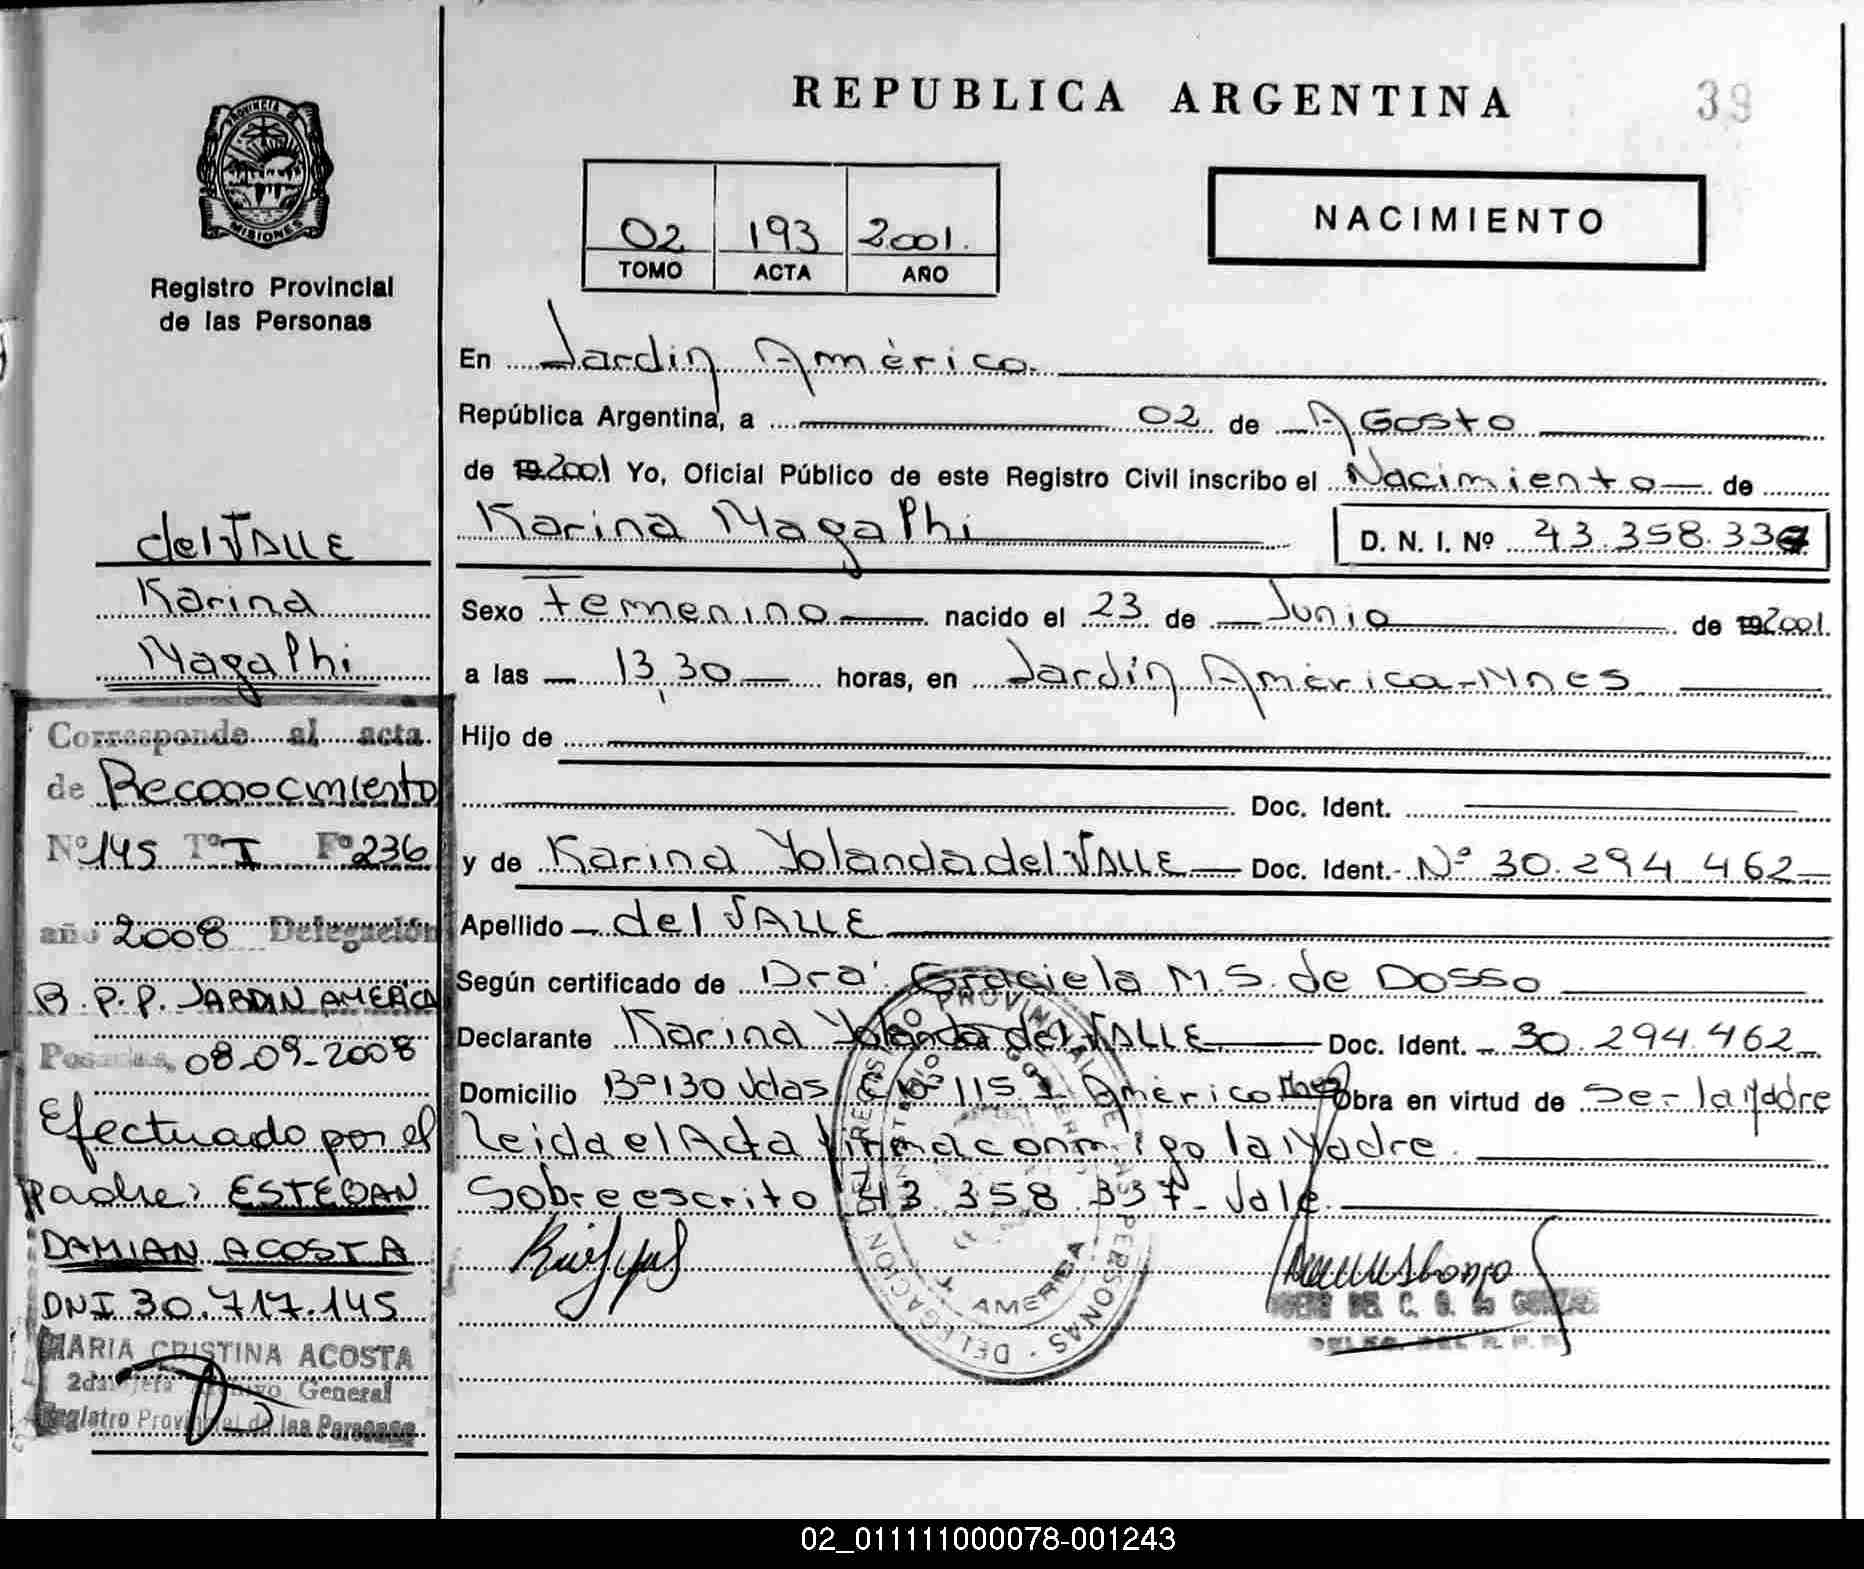 REPUBLICA ARGENTINA
39
PROVINCIA DE
MISIONES
Registro Provincial
de las Personas
02 193 2001.
TOMO ACTA AÑO
NACIMIENTO
En Jardín América
República Argentina, a 02 de Agosto
de 19 2001 Yo, Oficial Público de este Registro Civil inscribo el Nacimiento de
Karina Magalhi D. N. I. Nº 43.358.337
Sexo Femenino nacido el 23 de Junio de 19 2001.
a las 13,30 horas, en Jardín América-Mnes
Hijo de
Doc. Ident.
y de Karina Yolanda del VALLE Doc. Ident. Nº 30.294.462
Apellido del VALLE
Según certificado de Dra. Graciela M.S. de Dosso
Declarante Karina Yolanda del VALLE Doc. Ident. 30.294.462
Domicilio Bº 130 Vdas C Nº 115 J América Mnes Obra en virtud de Ser la Madre
Leida el Acta firma conmigo la Madre.
Sobreescrito 43.358.337- Vale.
REGISTRO PROVINCIAL DE LAS PERSONAS · DELEGACIÓN
AMERICA
del VALLE
Karina
Magalhi
Corresponde al acta
de Reconocimiento
Nº 145 Tº I Fº 236
año 2008 Delegación
R.P.P. JARDIN AMERICA
Posadas, 08-09-2008
Efectuado por el
padre: ESTEBAN
DAMIAN ACOSTA
DNI 30.717.145
MARIA CRISTINA ACOSTA
2da Jefa Archivo General
Registro Provincial de las Personas
02_011111000078-001243